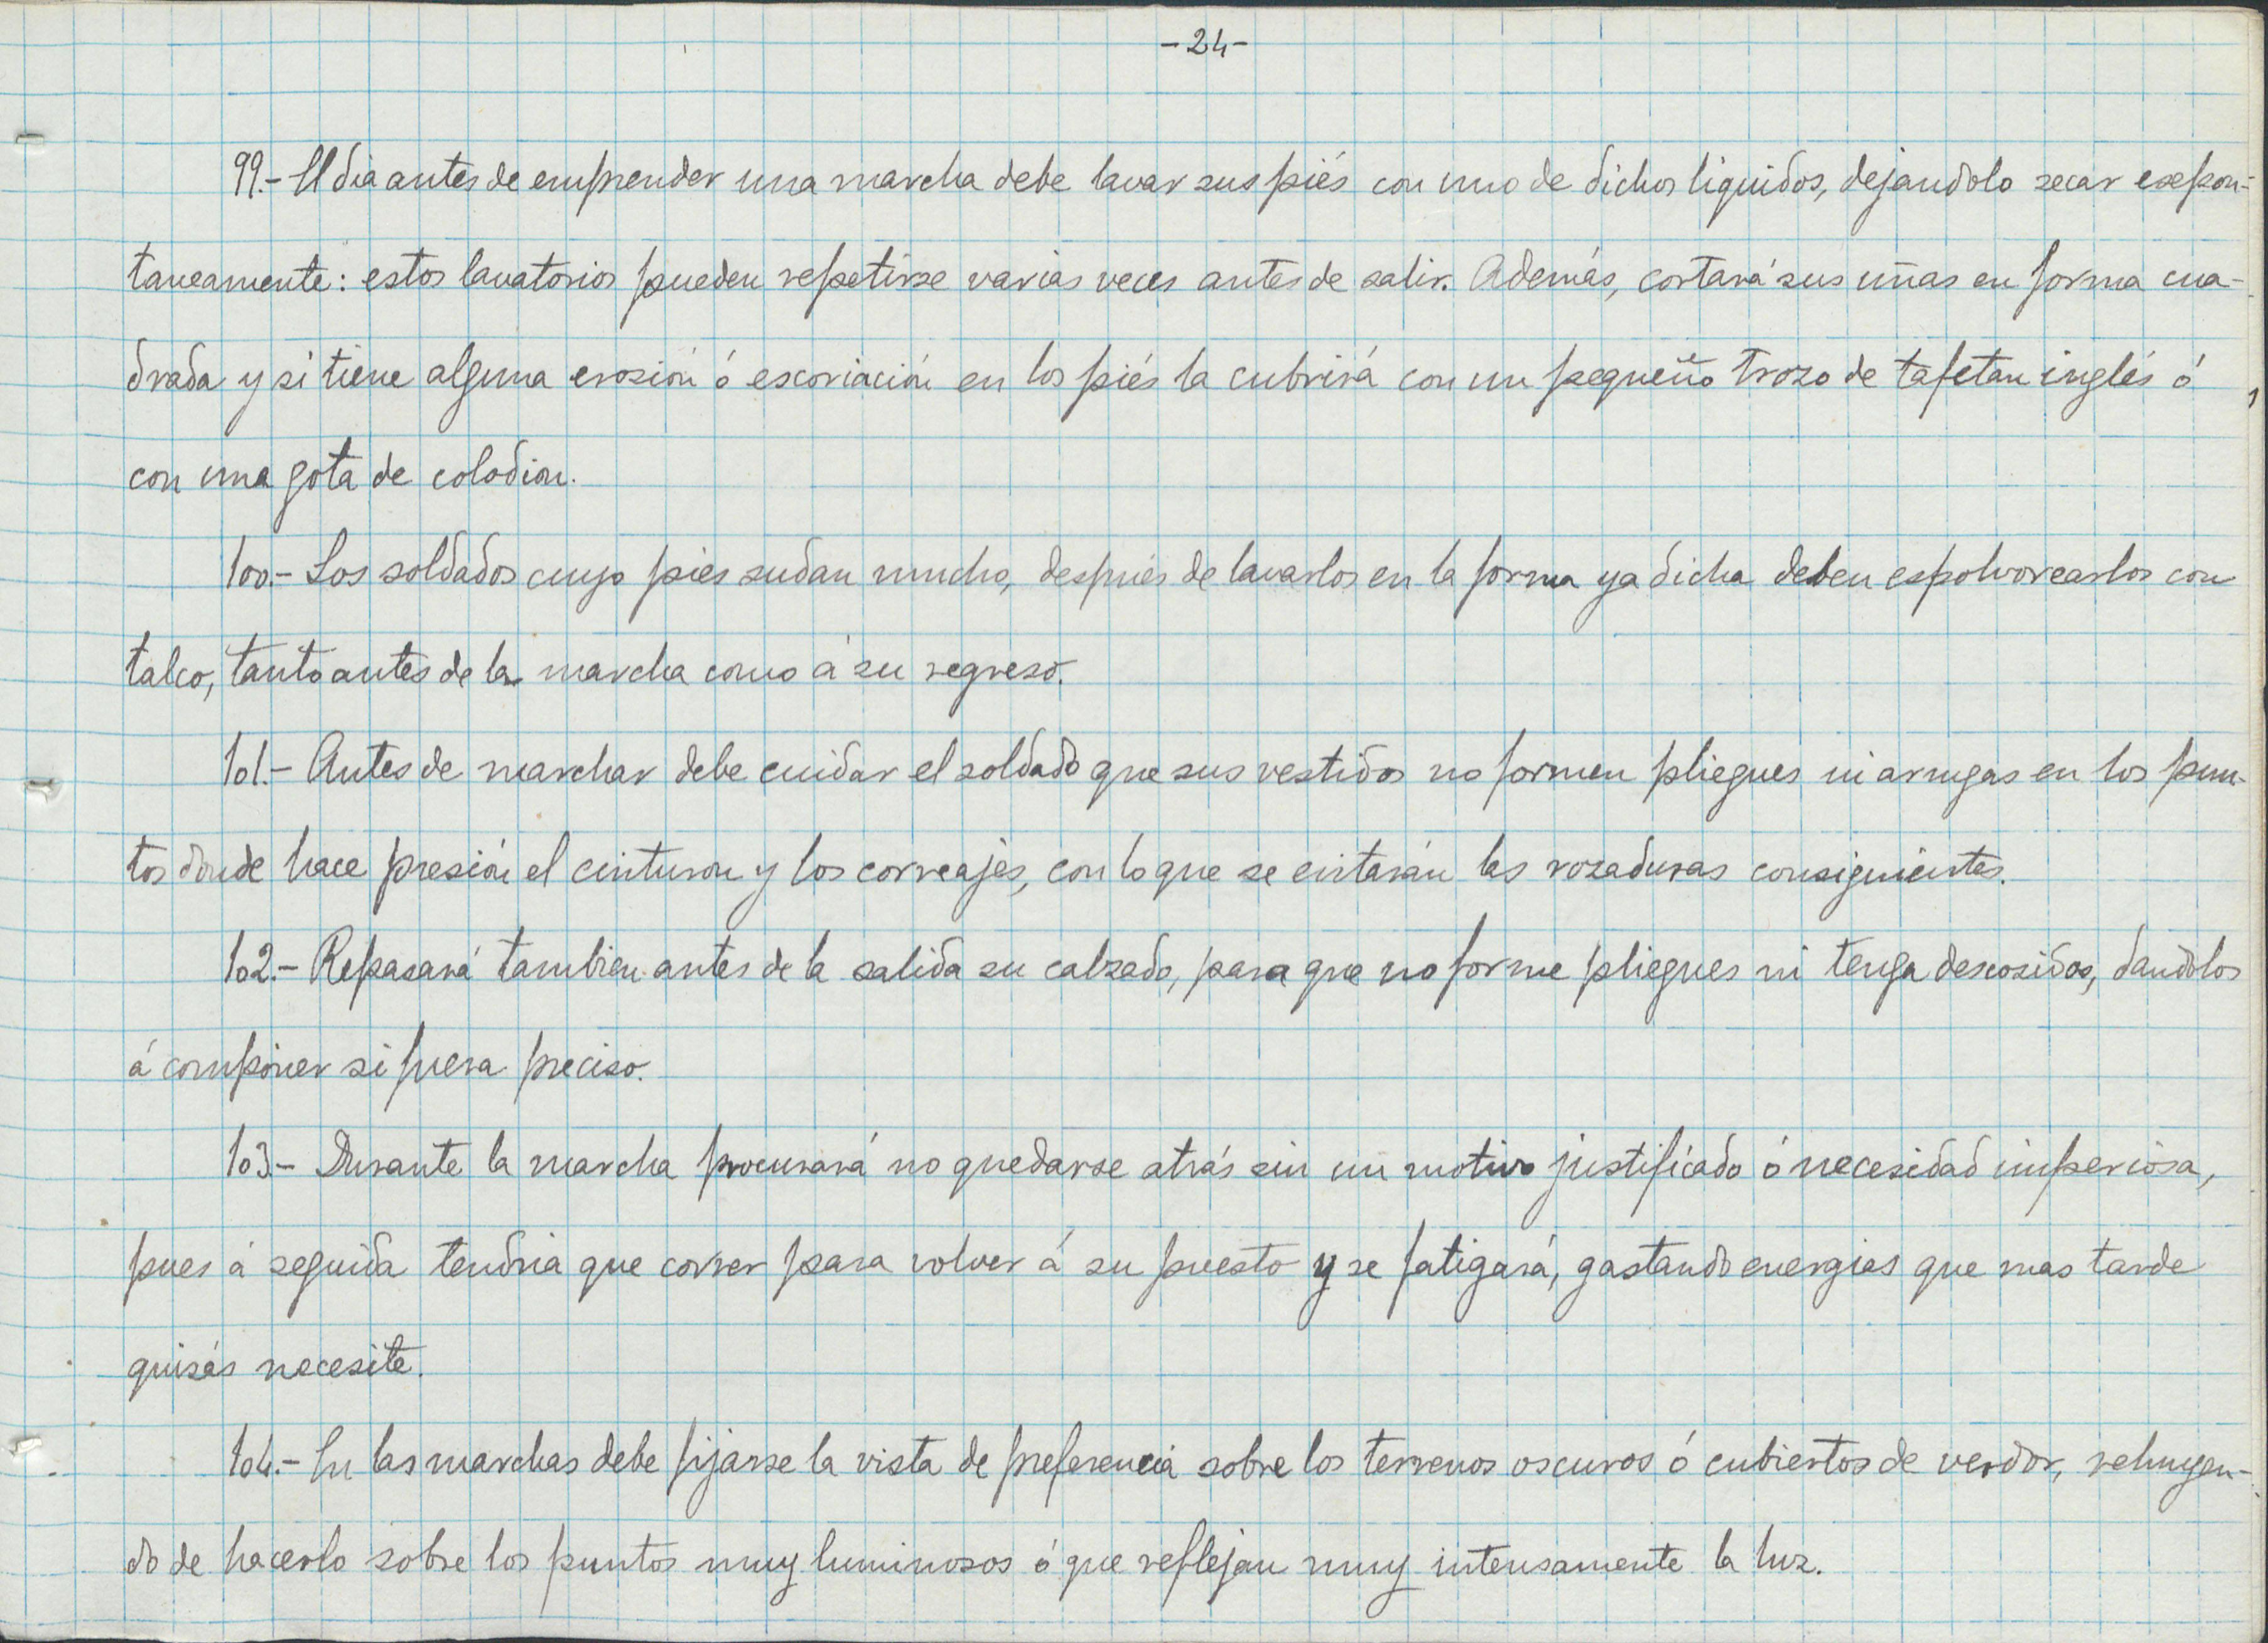 -24-
99.- El dia antes de emprender una marcha debe lavar sus piés con uno de dichos liquidos, dejandolo secar espon-
taneamente: estos lavatorios pueden repetirse varias veces antes de salir. Además, cortará sus uñas en forma cua-
drada y si tiene alguna erosión ó escoriación en los piés la cubrirá con un pequeño trozo de tafetan inglés ó
con una gota de colodion.
100.- Los soldados cuyo pies sudan mucho, después de lavarlos en la forma ya dicha deben espolvorearlos con
talco, tanto antes de la marcha como á su regreso.
101.- Antes de marchar debe cuidar el soldado que sus vestidos no formen pliegues ni arrugas en los pun-
tos donde hace presión el cinturon y los correajes, con lo que se evitarán las rozaduras consiguientes.
102.- Repasará tambien antes de la salida su calzado, para que no forme pliegues ni tenga descosidos, dandolos
á componer si fuera preciso.
103.- Durante la marcha procurará no quedarse atrás sin un motivo justificado ó necesidad imperiosa,
pues á seguida tendria que correr para volver á su puesto y se fatigará, gastando energias que mas tarde
quizás necesite.
104.- En las marchas debe fijarse la vista de preferencia sobre los terrenos oscuros ó cubiertos de verdor, rehuyen-
do de hacerlo sobre los puntos muy luminosos ó que reflejan muy intensamente la luz.